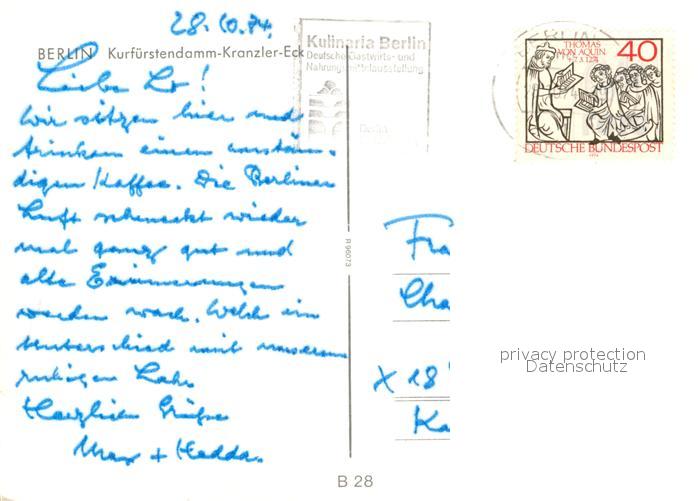 28.10.74.
BERLIN Kurfürstendamm-Kranzler-Eck
Kulinaria Berlin
Deutsche Gastwirts- und
Nahrungsmittelausstellung
Berlin
THOMAS
VON AQUIN
† 7.3.1274
40
DEUTSCHE BUNDESPOST
1974
Liebe Lo!
Wir sitzen hier und
trinken einen anstän-
digen Kaffee. Die Berliner
Luft schmeckt wieder
mal ganz gut und
alte Erinnerungen
werden wach. Welch ein
Unterschied mit unserem
ruhigen Lahr
Herzliche Grüße
Max + Hedda.
R 96073
Fra
Cha
X 18
Ka
privacy protection
Datenschutz
B 28